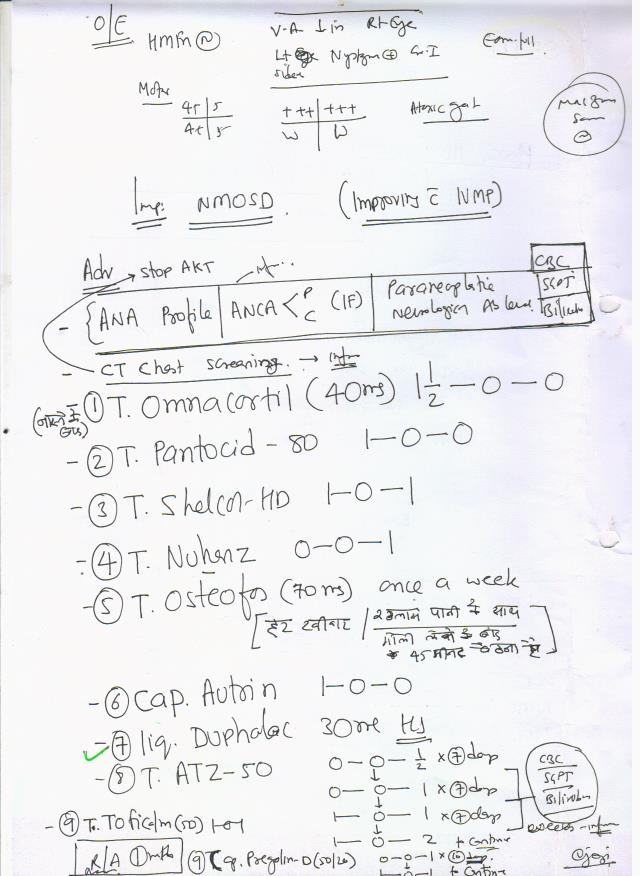 O/E HMFn (N)
V.A ↓ in Rt Eye
Lt Nystgm ⊕ Gr. I
side
Motor 4+ | 5
4+ | 5
+++ | +++
W | W
Ataxic gait
Imp: NMOSD. (Improving c̄ IVMP)
Adv → stop AKT
- { ANA Profile | ANCA < P C (IF) | Paraneoplastic Neurologica Ab level
CBC
SGPT
Bilirubin
- CT Chest Screening. →
- ① T. Omnacortil (40mg) 1½ — 0 — 0
- ② T. Pantocid - 80 1-0-0
- ③ T. Shelcal-HD 1-0-1
- ④ T. Nuhenz 0-0-1
- ⑤ T. Osteofos (70mg) once a week
[हर रवीवार / 2 ग्लास पानी के साथ
गोली लेने के बाद
45 मीनट
- ⑥ Cap. Autrin 1-0-0
- ⑦ liq. Duphalac 30ml HS
- ⑧ T. ATZ-50 0-0-½ × ⑦ days
0-0-1 × ⑦ days
0-0-1 × ⑦ days
0-0-2 + continue
CBC
SGPT
Bilirubin
- ⑨ T. Toficalm (50) 1-0-1
R/A ① month
⑨ Cap. Pregalin-D (50/20) 0-0-1 × ⑩ days
→ continue